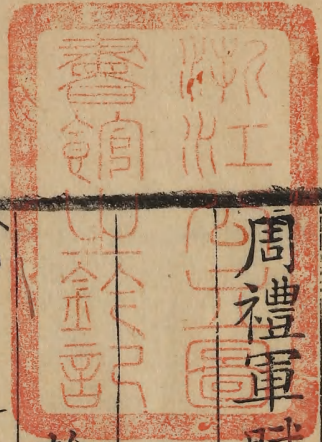 浙江公立圖
書館之鈐記
周禮軍